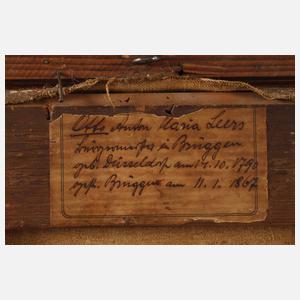 Otto Anton Maria Leers
Bürgermeister in Brüggen
geb. Düsseldorf am 14.10.1790
gest. Brüggen am 11.1.1867